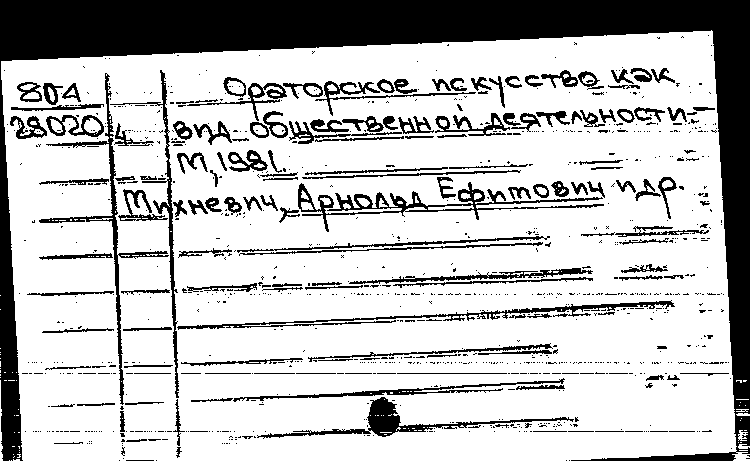 804 Ораторское искусство как
28020 4. вид общественной деятельности.-
М, 1981.
Михневич, Арнольд Ефимович и др.